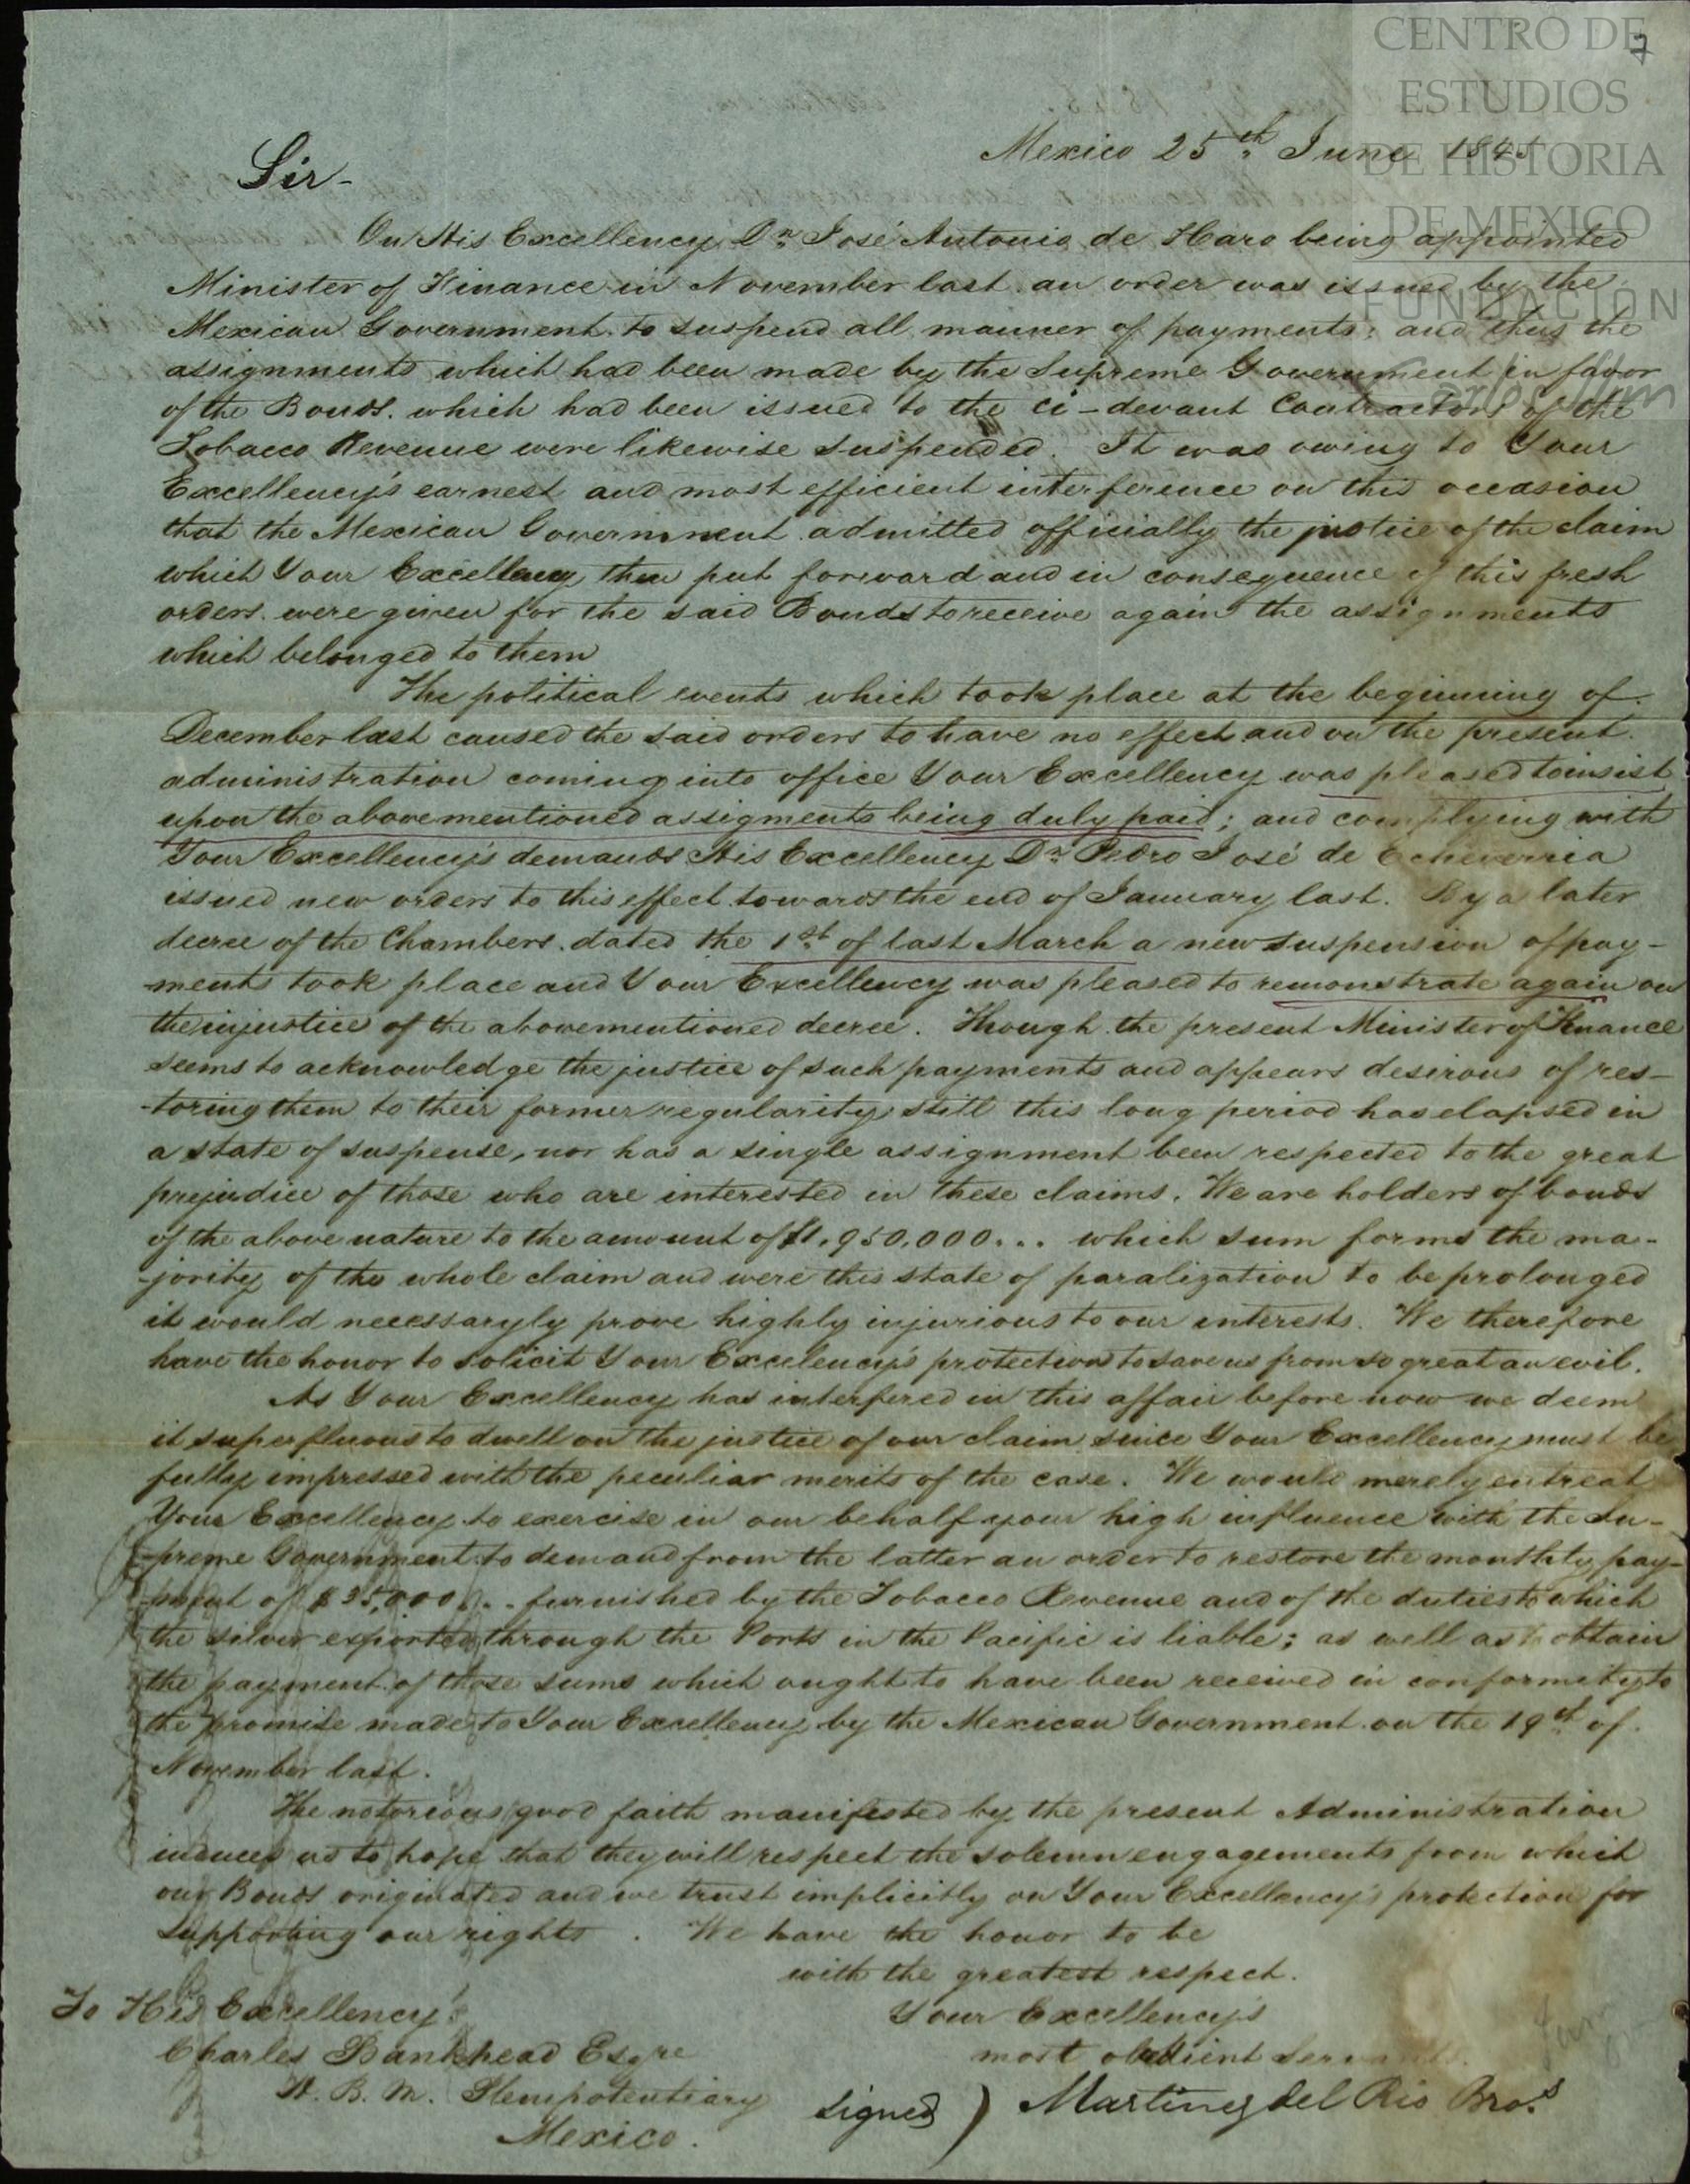 CENTRO DE
ESTUDIOS
DE HISTORIA
DE MEXICO
FUNDACIÓN
Carlos Slim
7
Mexico 25th June 1845
Sir-
On His Excellency Dn José Antonio de Haro being appointed
Minister of Finance in November last an order was issued by the
Mexican Government to suspend all manner of payments: and thus the
assignments which had been made by the Supreme Government in favor
of the Bonds which had been issued to the ci-devant Contractors of the
Tobacco Revenue were likewise suspended. It was owing to Your
Excellency's earnest and most efficient interference on this occasion
that the Mexican Government admitted officially the justice of the claim
which Your Excellency then put forward and in consequence of this fresh
orders were given for the said Bonds to receive again the assignments
which belonged to them
The political events which took place at the beginning of
December last caused the said orders to have no effect and on the present
administration coming into office Your Excellency was pleased to insist
upon the abovementioned assigments being duly paid; and complying with
Your Excellency's demands His Excellency Dn Pedro José de Echeverria
issued new orders to this effect towards the end of January last. By a later
decree of the Chambers dated the 1st of last March a new suspension of pay-
-ments took place and Your Excellency was pleased to remonstrate again on
the injustice of the abovementioned decree. Though the present Minister of Finance
seems to acknowledge the justice of such payments and appears desirous of res-
-toring them to their former regularity still this long period has elapsed in
a state of suspense, nor has a single assignment been respected to the great
prejudice of those who are interested in these claims. We are holders of bonds
of the above nature to the amount of $1,950,000... which sum forms the ma-
-jority of the whole claim and were this state of paralization to be prolonged
it would necessaryly prove highly injurious to our interests. We therefore
have the honor to solicit Your Excelency's protection to save us from so great an evil.
As Your Excellency has interfered in this affair before now we deem
it superfluous to dwell on the justice of our claim since Your Excellency must be
fully impressed with the peculiar merits of the case. We would merely entreat
Your Excellency to exercise in our behalf your high influence with the Su-
-preme Government to demand from the latter an order to restore the monthly pay-
-ment of $35,000... furnished by the Tobacco Revenue and of the duties to which
the silver exported through the Ports in the Pacific is liable; as well as to obtain
the payment of those sums which ought to have been received in conformity to
the promise made to Your Excellency by the Mexican Government on the 19th of
November last.
The notorious good faith manifested by the present Administration
induces us to hope that they will respect the solemn engagements from which
our Bonds originated and we trust implicitly on Your Excellency's protection for
supporting our rights. We have the honor to be
with the greatest respect.
Your Excellency's
most obedient Servants.
signed) Martinez del Rio Bros
To His Excellency
Charles Bankhead Esqre
H. B. M. Plenipotentiary
Mexico.